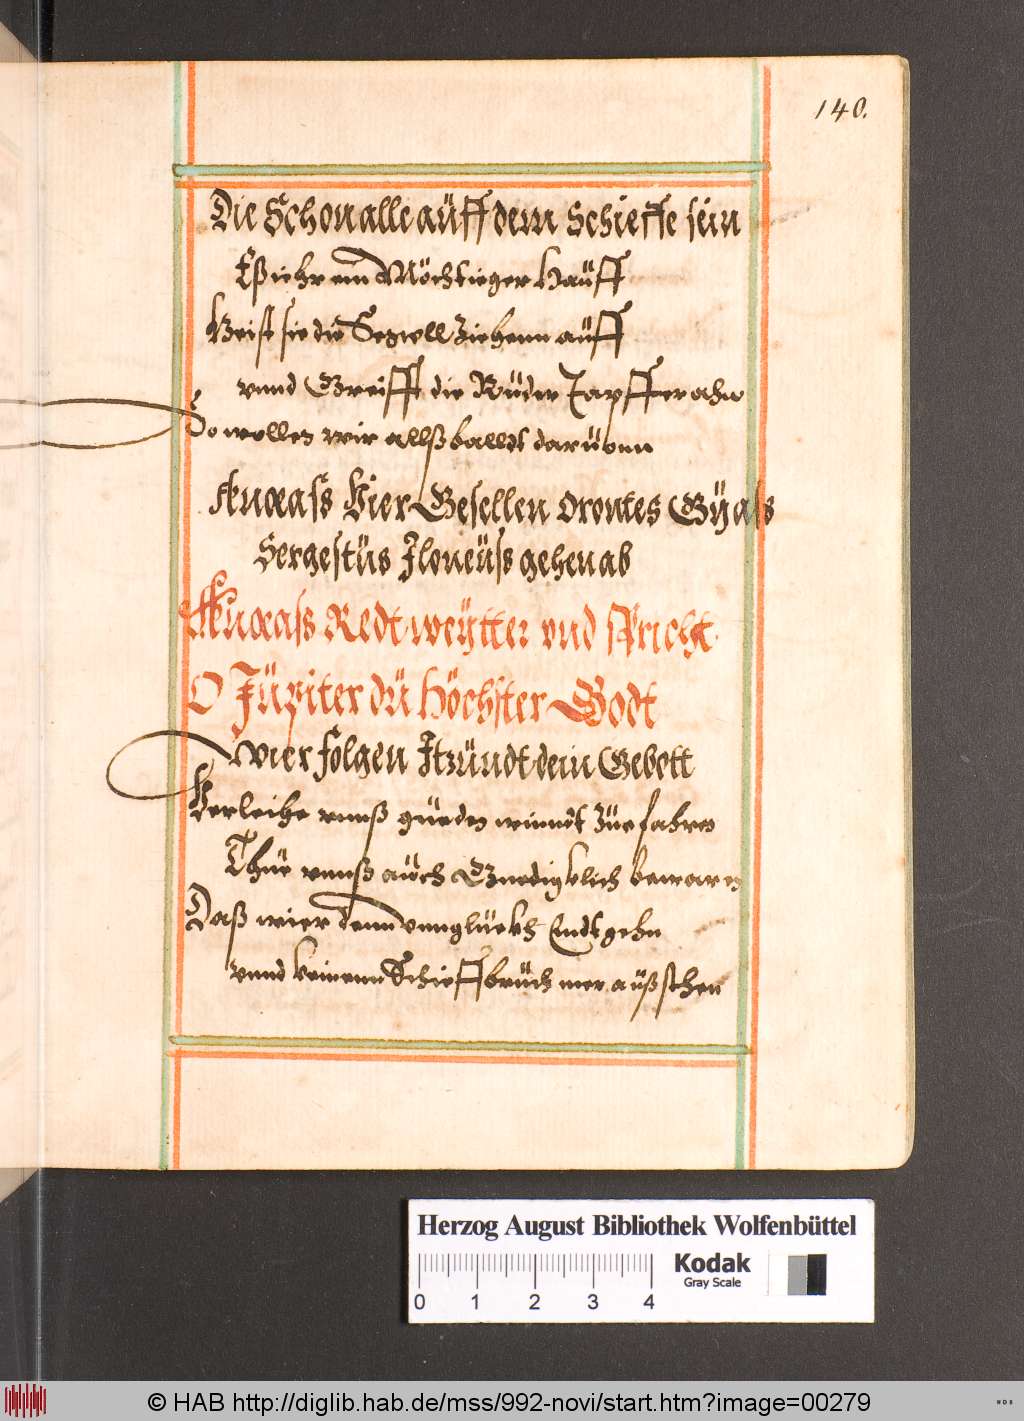 140.
Die Schon alle auff dem Schieffe sein
Eß iehr ein Möchtieger Hauff
Heist sie die Segell Ziehenn auff
vnnd Greifft die Rüder Tapffer ahn
So wollen wir allß balldt daruonn
Aenæass Hier Gesellen Orontes Gyass
Sergestüs Iloneüss gehen ab
Aenæass Redt weytter vnd spricht
O Jüpiter dü Höchster Godt
Wier folgen Itzündt dein Gebott
Verleihe vnnß gueden winndt Zue fahren
Thüe vnnß auch Gnediglich bewaren
Daß wier denn vnnglückh Endtgehn
vnnd keinenn Schieffbrüch mer außstehen
Herzog August Bibliothek Wolfenbüttel
Kodak
Gray Scale
0 1 2 3 4
© HAB http://diglib.hab.de/mss/992-novi/start.htm?image=00279